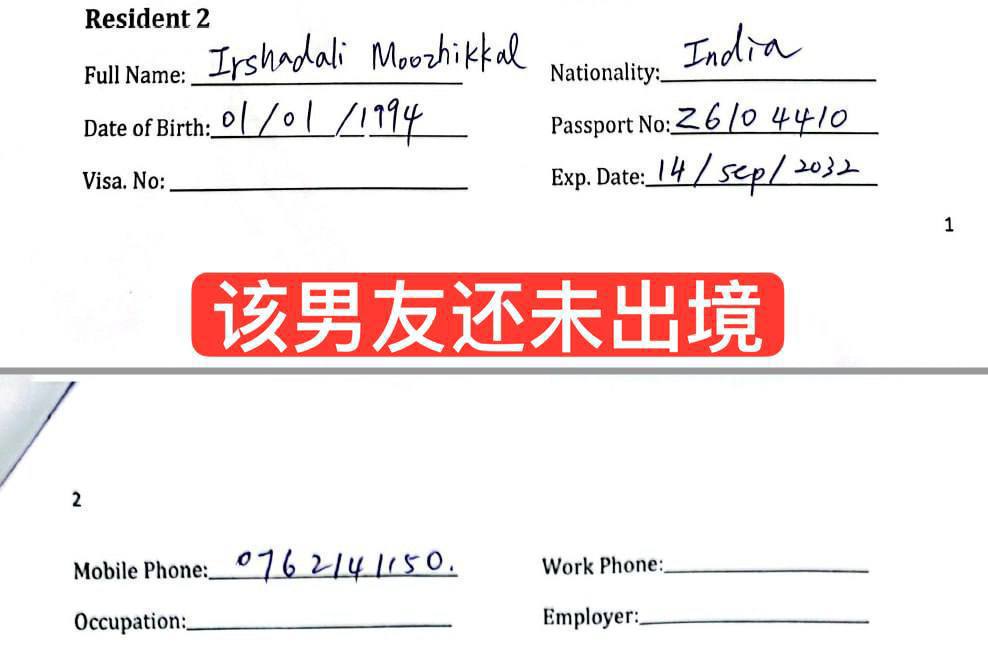 Resident 2
Full Name: Irshadali Moozhikkal Nationality: India
Date of Birth: 01/01/1994 Passport No: Z6104410
Visa. No: Exp. Date: 14/sep/2032
1
该男友还未出境
2
Mobile Phone: 0762141150. Work Phone:
Occupation: Employer: